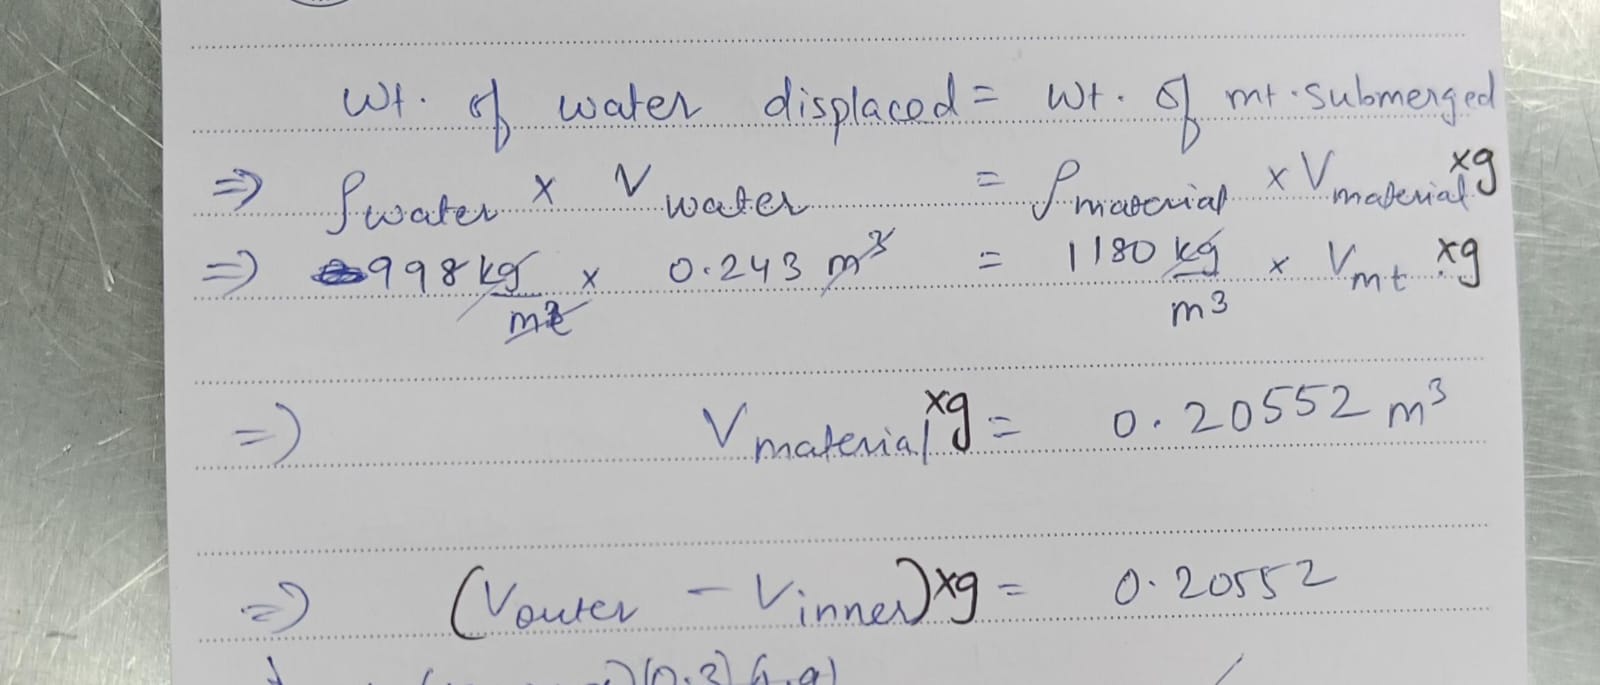 Wt. of water displaced = Wt. of mt. submerged
⇒ ρwater × Vwater = ρmaterial × Vmaterial xg
⇒ 998 kg/m³ × 0.243 m³ = 1180 kg/m³ × Vmt xg
⇒ Vmaterial xg = 0.20552 m³
⇒ (Vouter − Vinner) xg = 0.20552